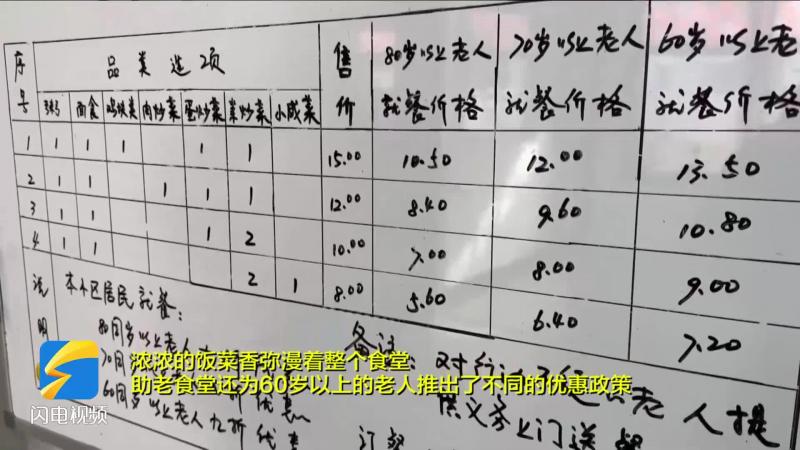 序号 品类选项 售价 80岁以上老人就餐价格 70岁以上老人就餐价格 60岁以上老人就餐价格
粥 面食 鸡块类 肉炒菜 蛋炒菜 素炒菜 小咸菜
1 1 1 1 1 1 15.00 10.50 12.00 13.50
2 1 1 1 1 1 12.00 8.40 9.60 10.80
3 1 1 1 2 10.00 7.00 8.00 9.00
4 1 1 2 1 8.00 5.60 6.40 7.20
说明
本小区居民就餐:
80周岁以上老人
70周
60周岁以上老人九折优惠
备注:
老人提
供义务上门送餐
订餐
浓浓的饭菜香弥漫着整个食堂
助老食堂还为60岁以上的老人推出了不同的优惠政策
闪电视频